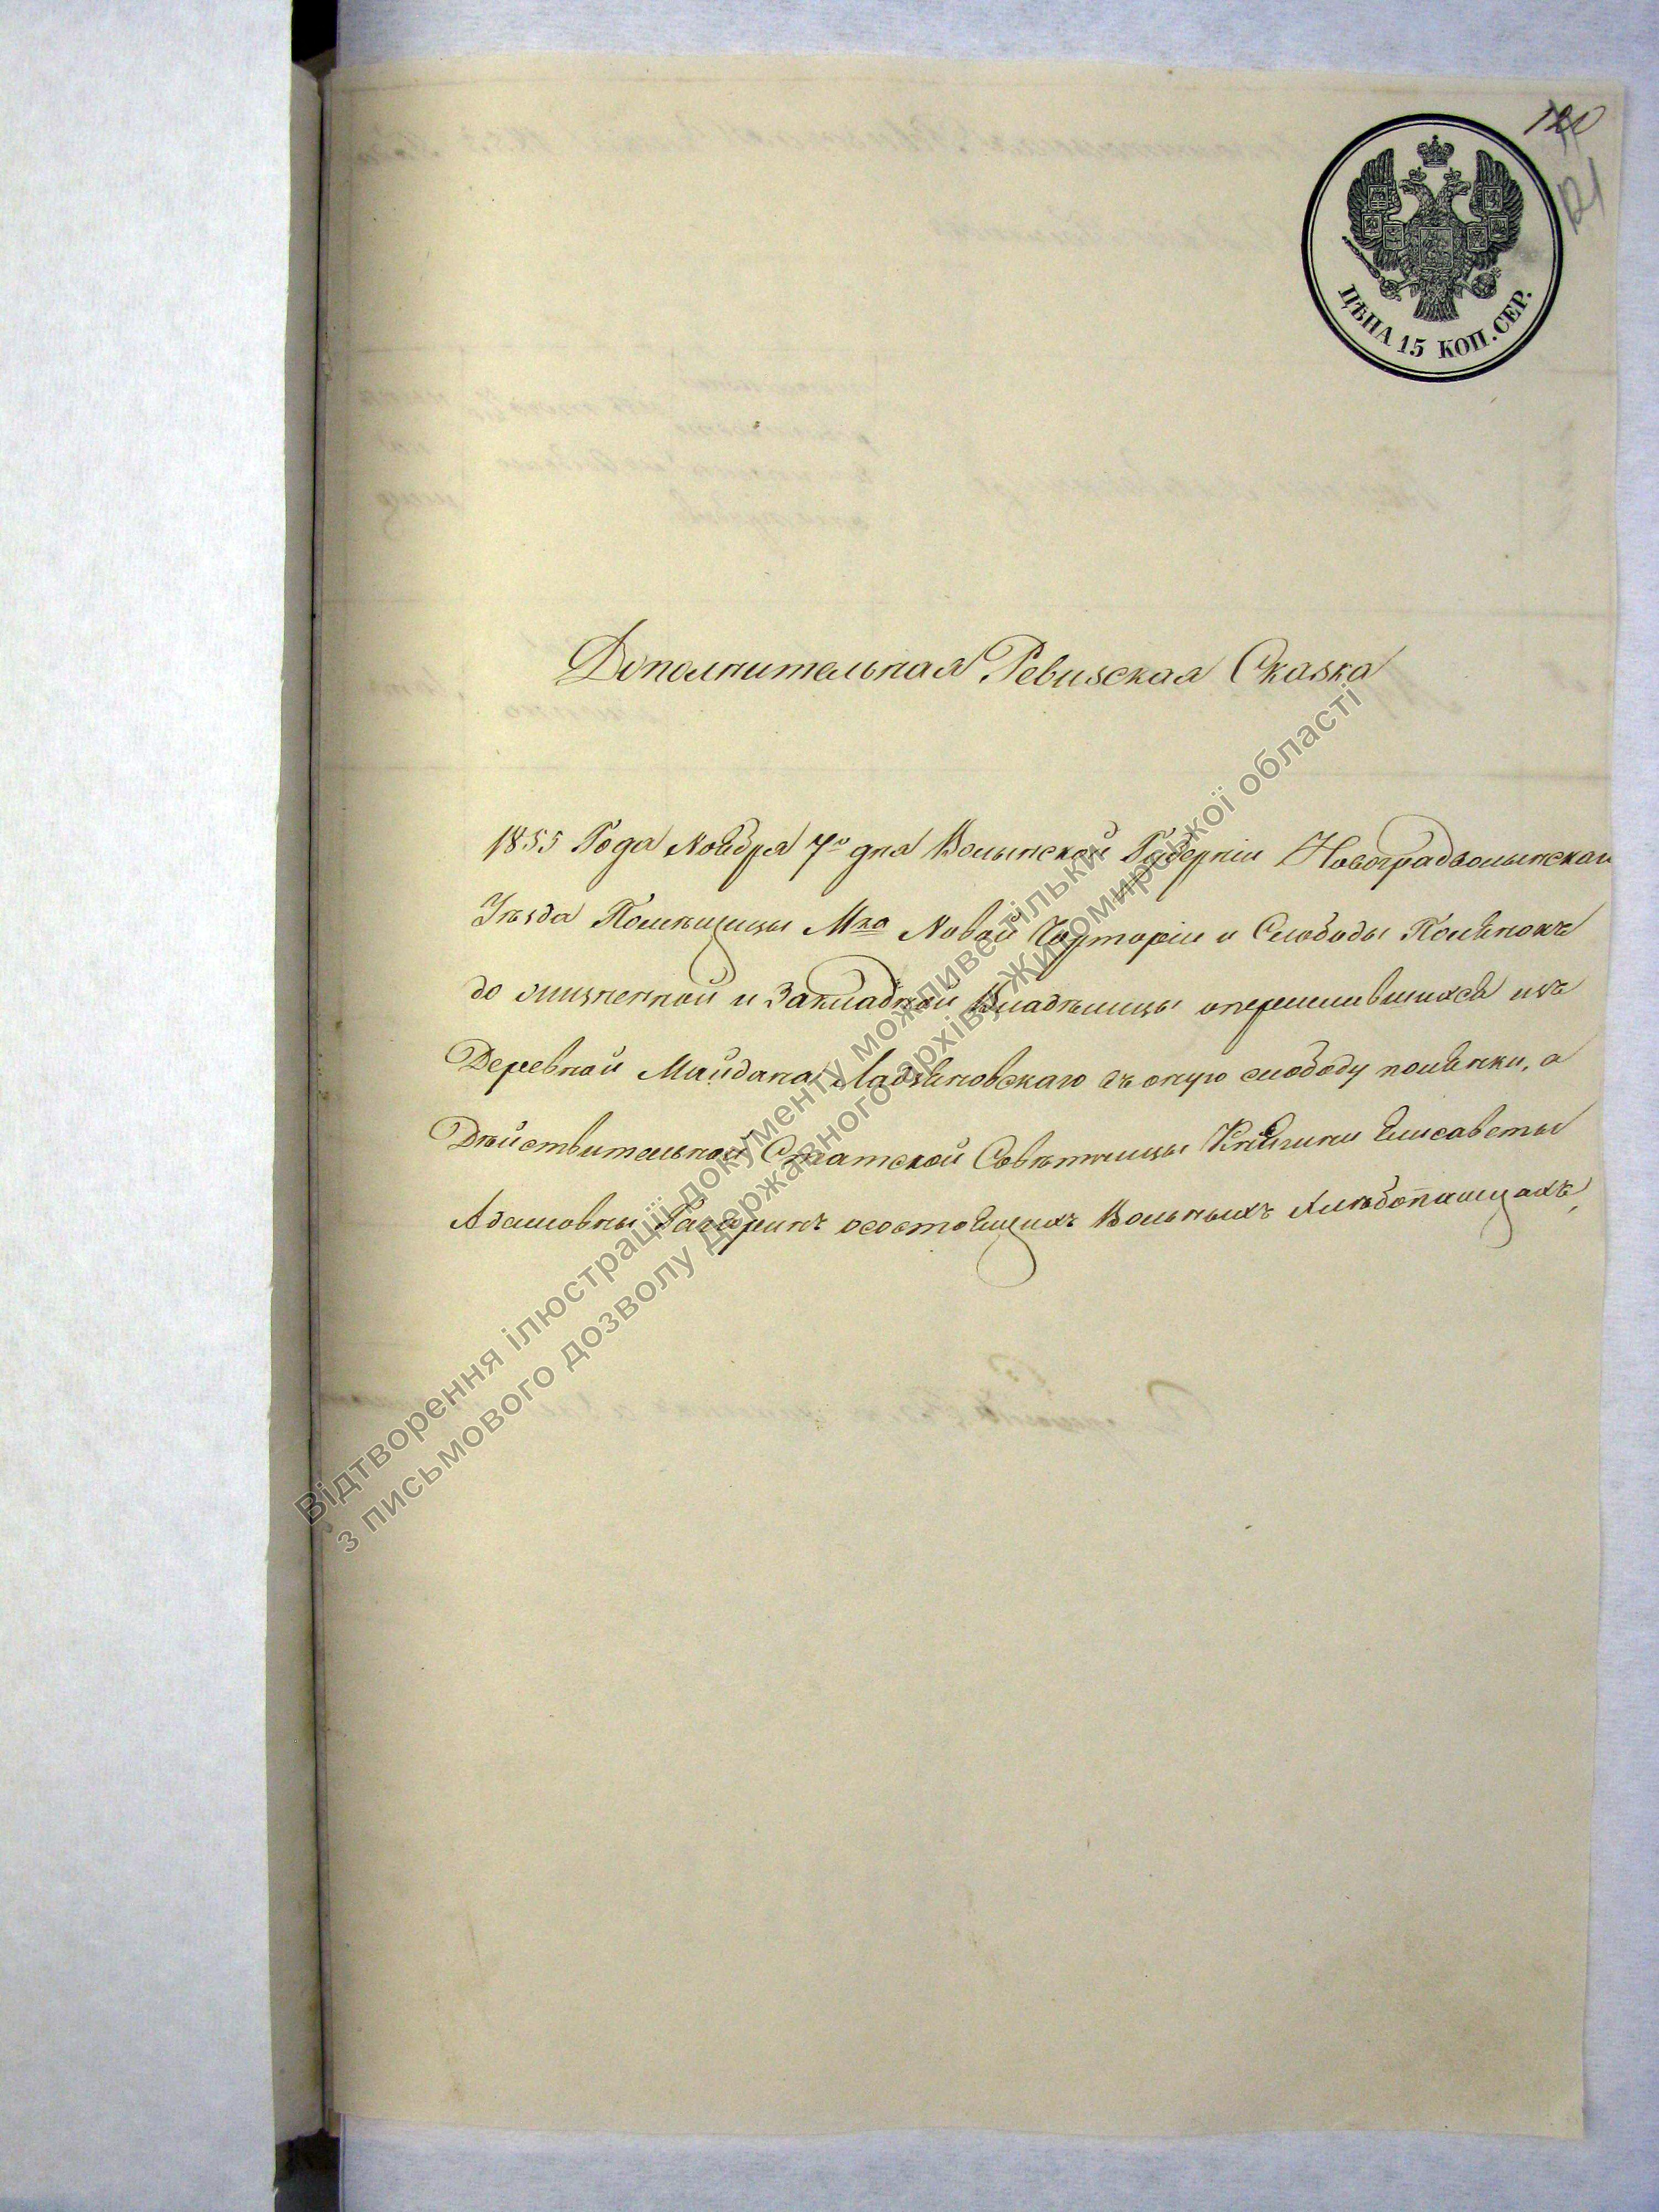 120
121
ЦѢНА 15 КОП. СЕР.
Дополнительная Ревизская Сказка
1855 Года Ноября 7го дня Волынской Губерніи Новоградволынскаго
Уѣзда Помѣщицы Мка Новой Чорторіи и Слободы Полянокъ
до жизненной и Закладной Владѣлицы оперешившихся изъ
Деревной Майдана Лабунского въ оную слободу полянки, а
Дѣйствительной Статской Совѣтницы Княгини Елисаветы
Адамовны Гагаринъ осостоящихъ Вольныхъ Хлѣбопашцахъ,
Відтворення ілюстрації документу можливе тільки
з письмового дозволу Державного архіву Житомирської області